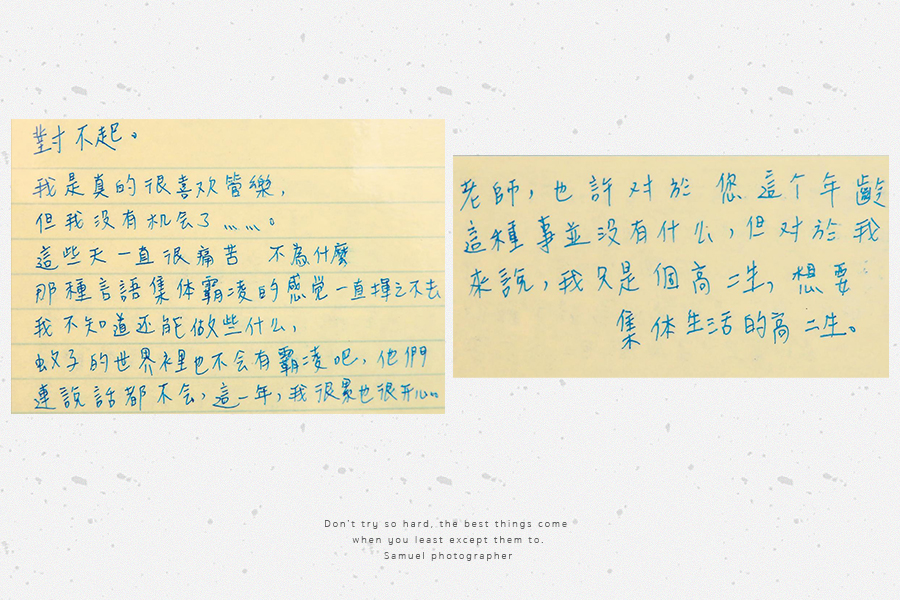 對不起。
我是真的很喜欢管樂，
但我沒有机会了……。
這些天一直很痛苦 不為什麼
那種言語集体霸凌的感觉一直揮之不去
我不知道还能做些什么，
蚊子的世界裡也不会有霸凌吧，他們
連說話都不会，這一年，我很累也很开心…
老師，也許对於您這个年齡
這種事並没有什么，但对於我
來說，我只是個高二生，想要
集体生活的高二生。
Don't try so hard, the best things come
when you least except them to.
Samuel photographer